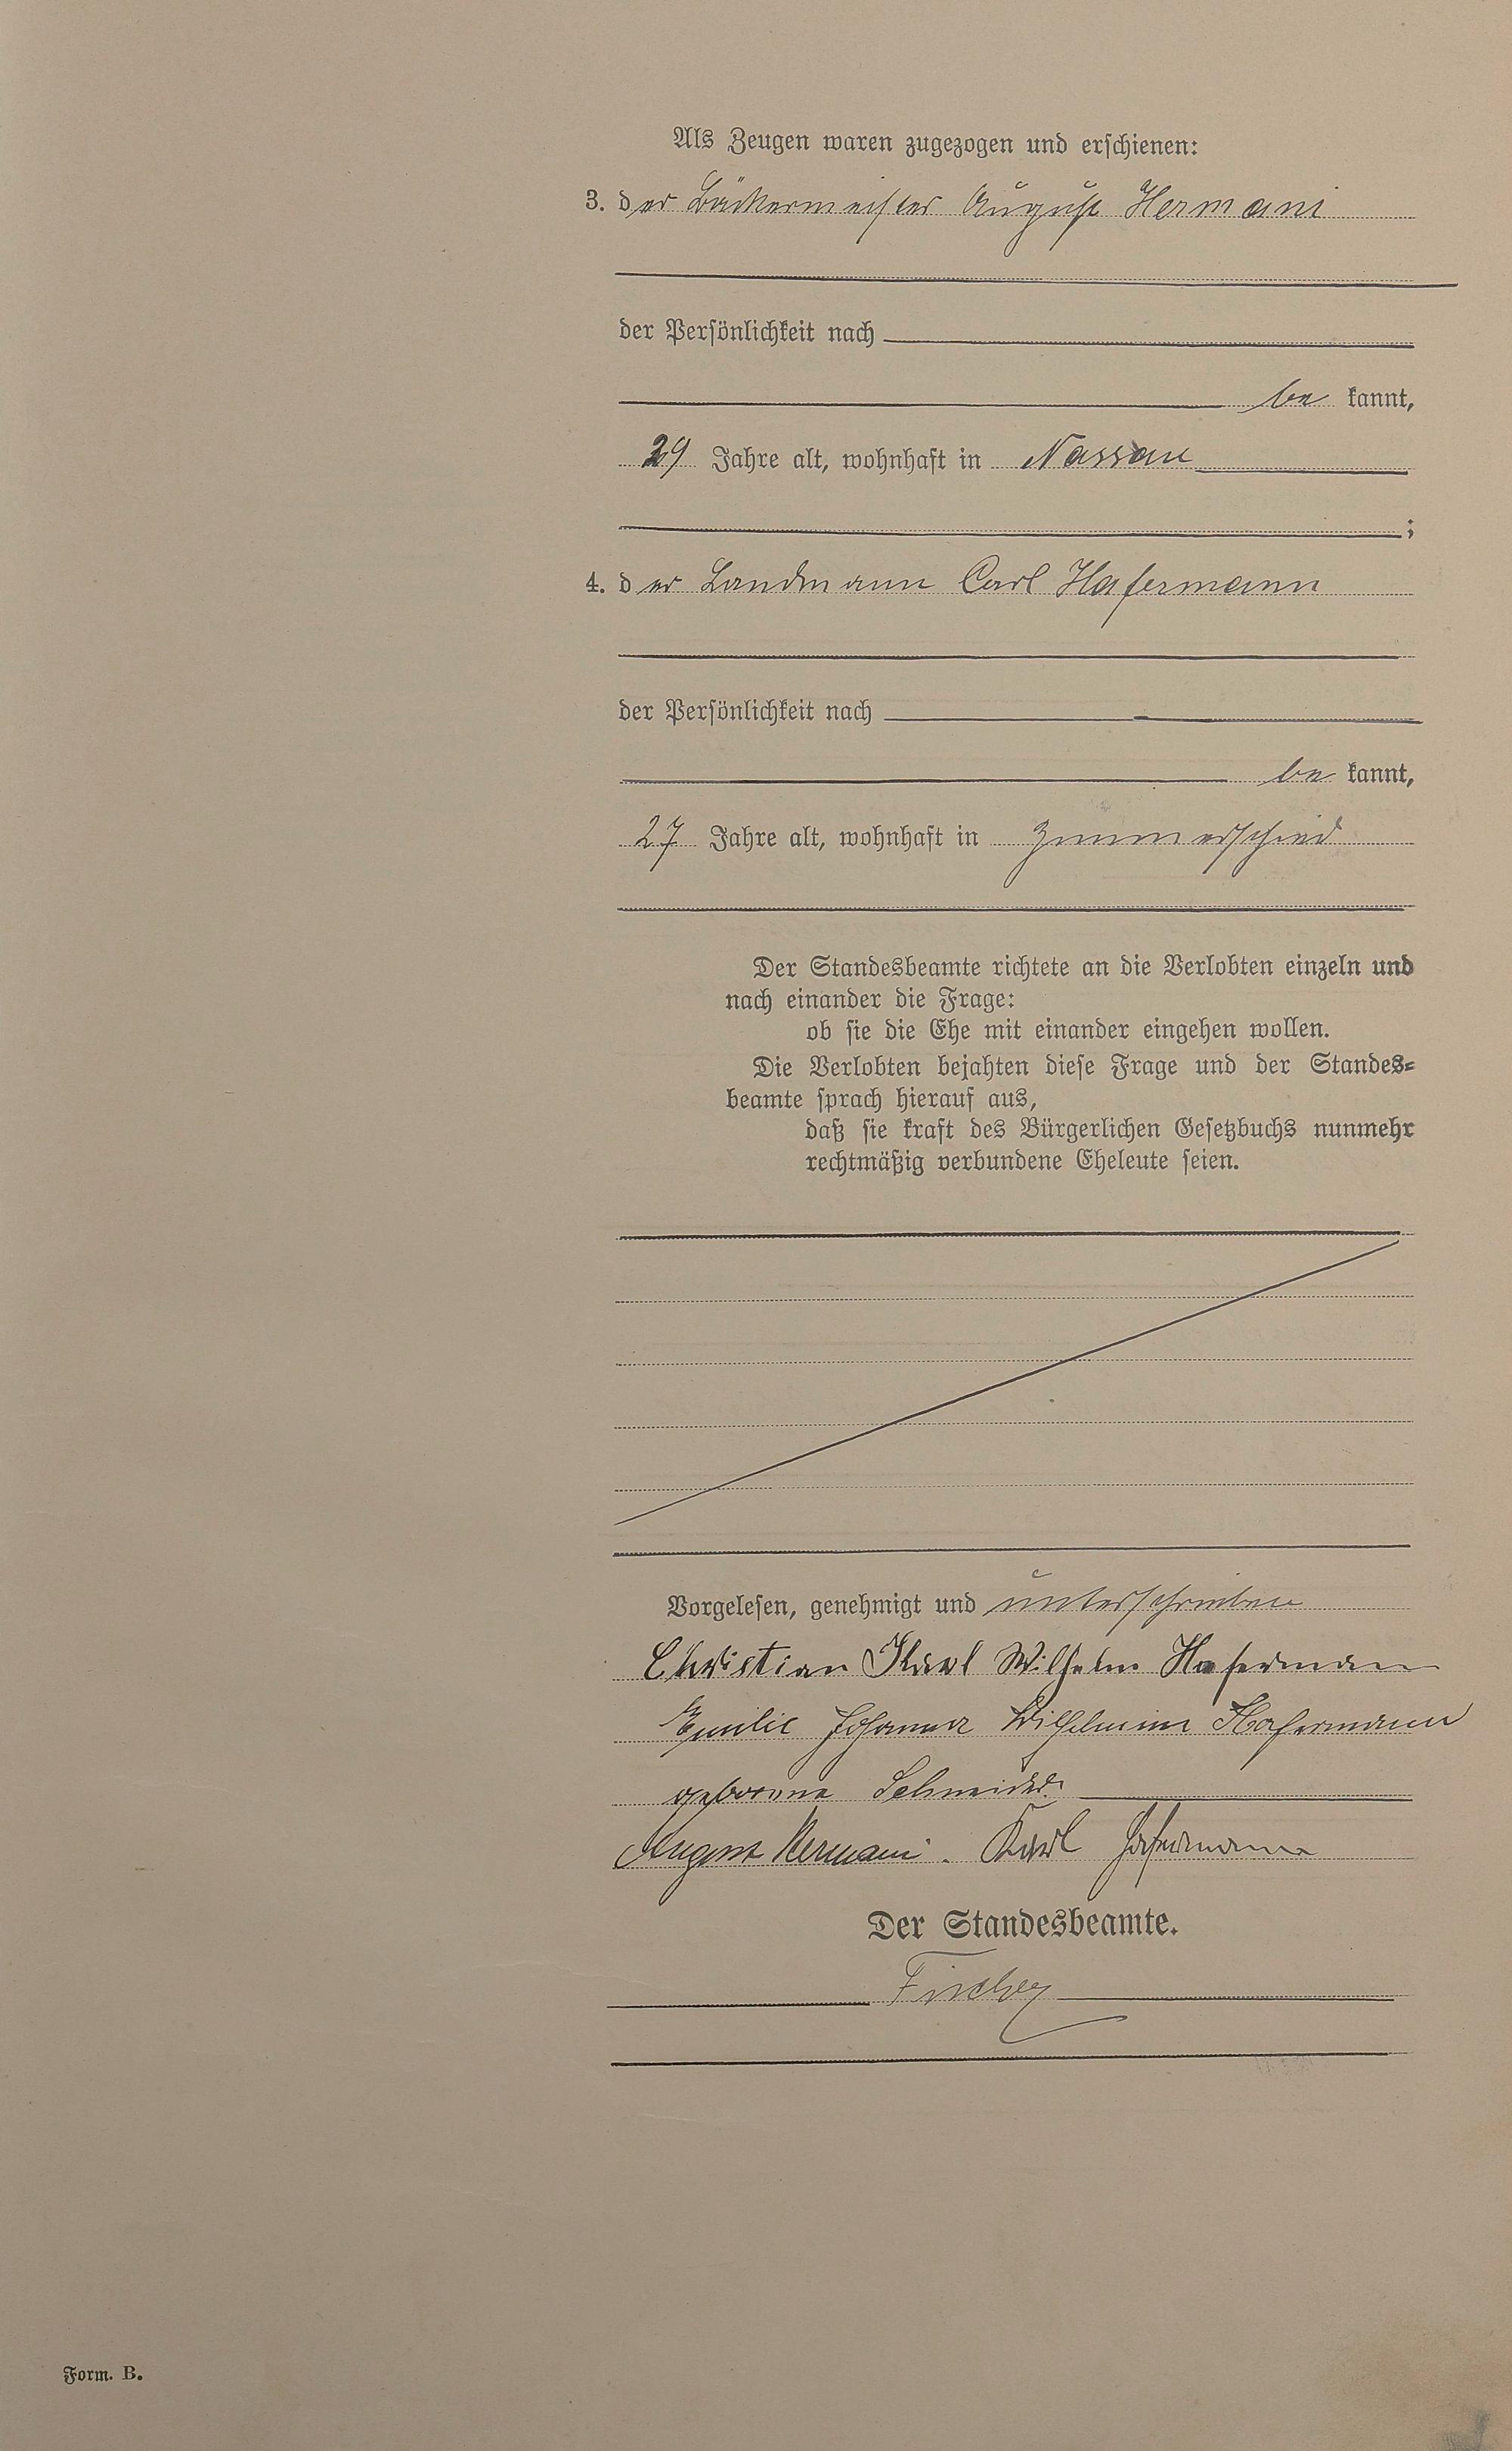 Als Zeugen waren zugezogen und erschienen:
3. der Bäckermeister August Hermani
der Persönlichkeit nach
be kannt,
29 Jahre alt, wohnhaft in Nassau
;
4. der Landmann Carl Hafermann
der Persönlichkeit nach
be kannt,
27 Jahre alt, wohnhaft in Zimmerschied
Der Standesbeamte richtete an die Verlobten einzeln und
nach einander die Frage:
ob sie die Ehe mit einander eingehen wollen.
Die Verlobten bejahten diese Frage und der Standes=
beamte sprach hierauf aus,
daß sie kraft des Bürgerlichen Gesetzbuchs nunmehr
rechtmäßig verbundene Eheleute seien.
Vorgelesen, genehmigt und unterschrieben
Christian Karl Wilhelm Hafermann
Emilie Johanna Wilhelmine Hafermann
geborene Schneider.
August Hermani. Karl Hafermann
Der Standesbeamte.
Fischer
Form. B.